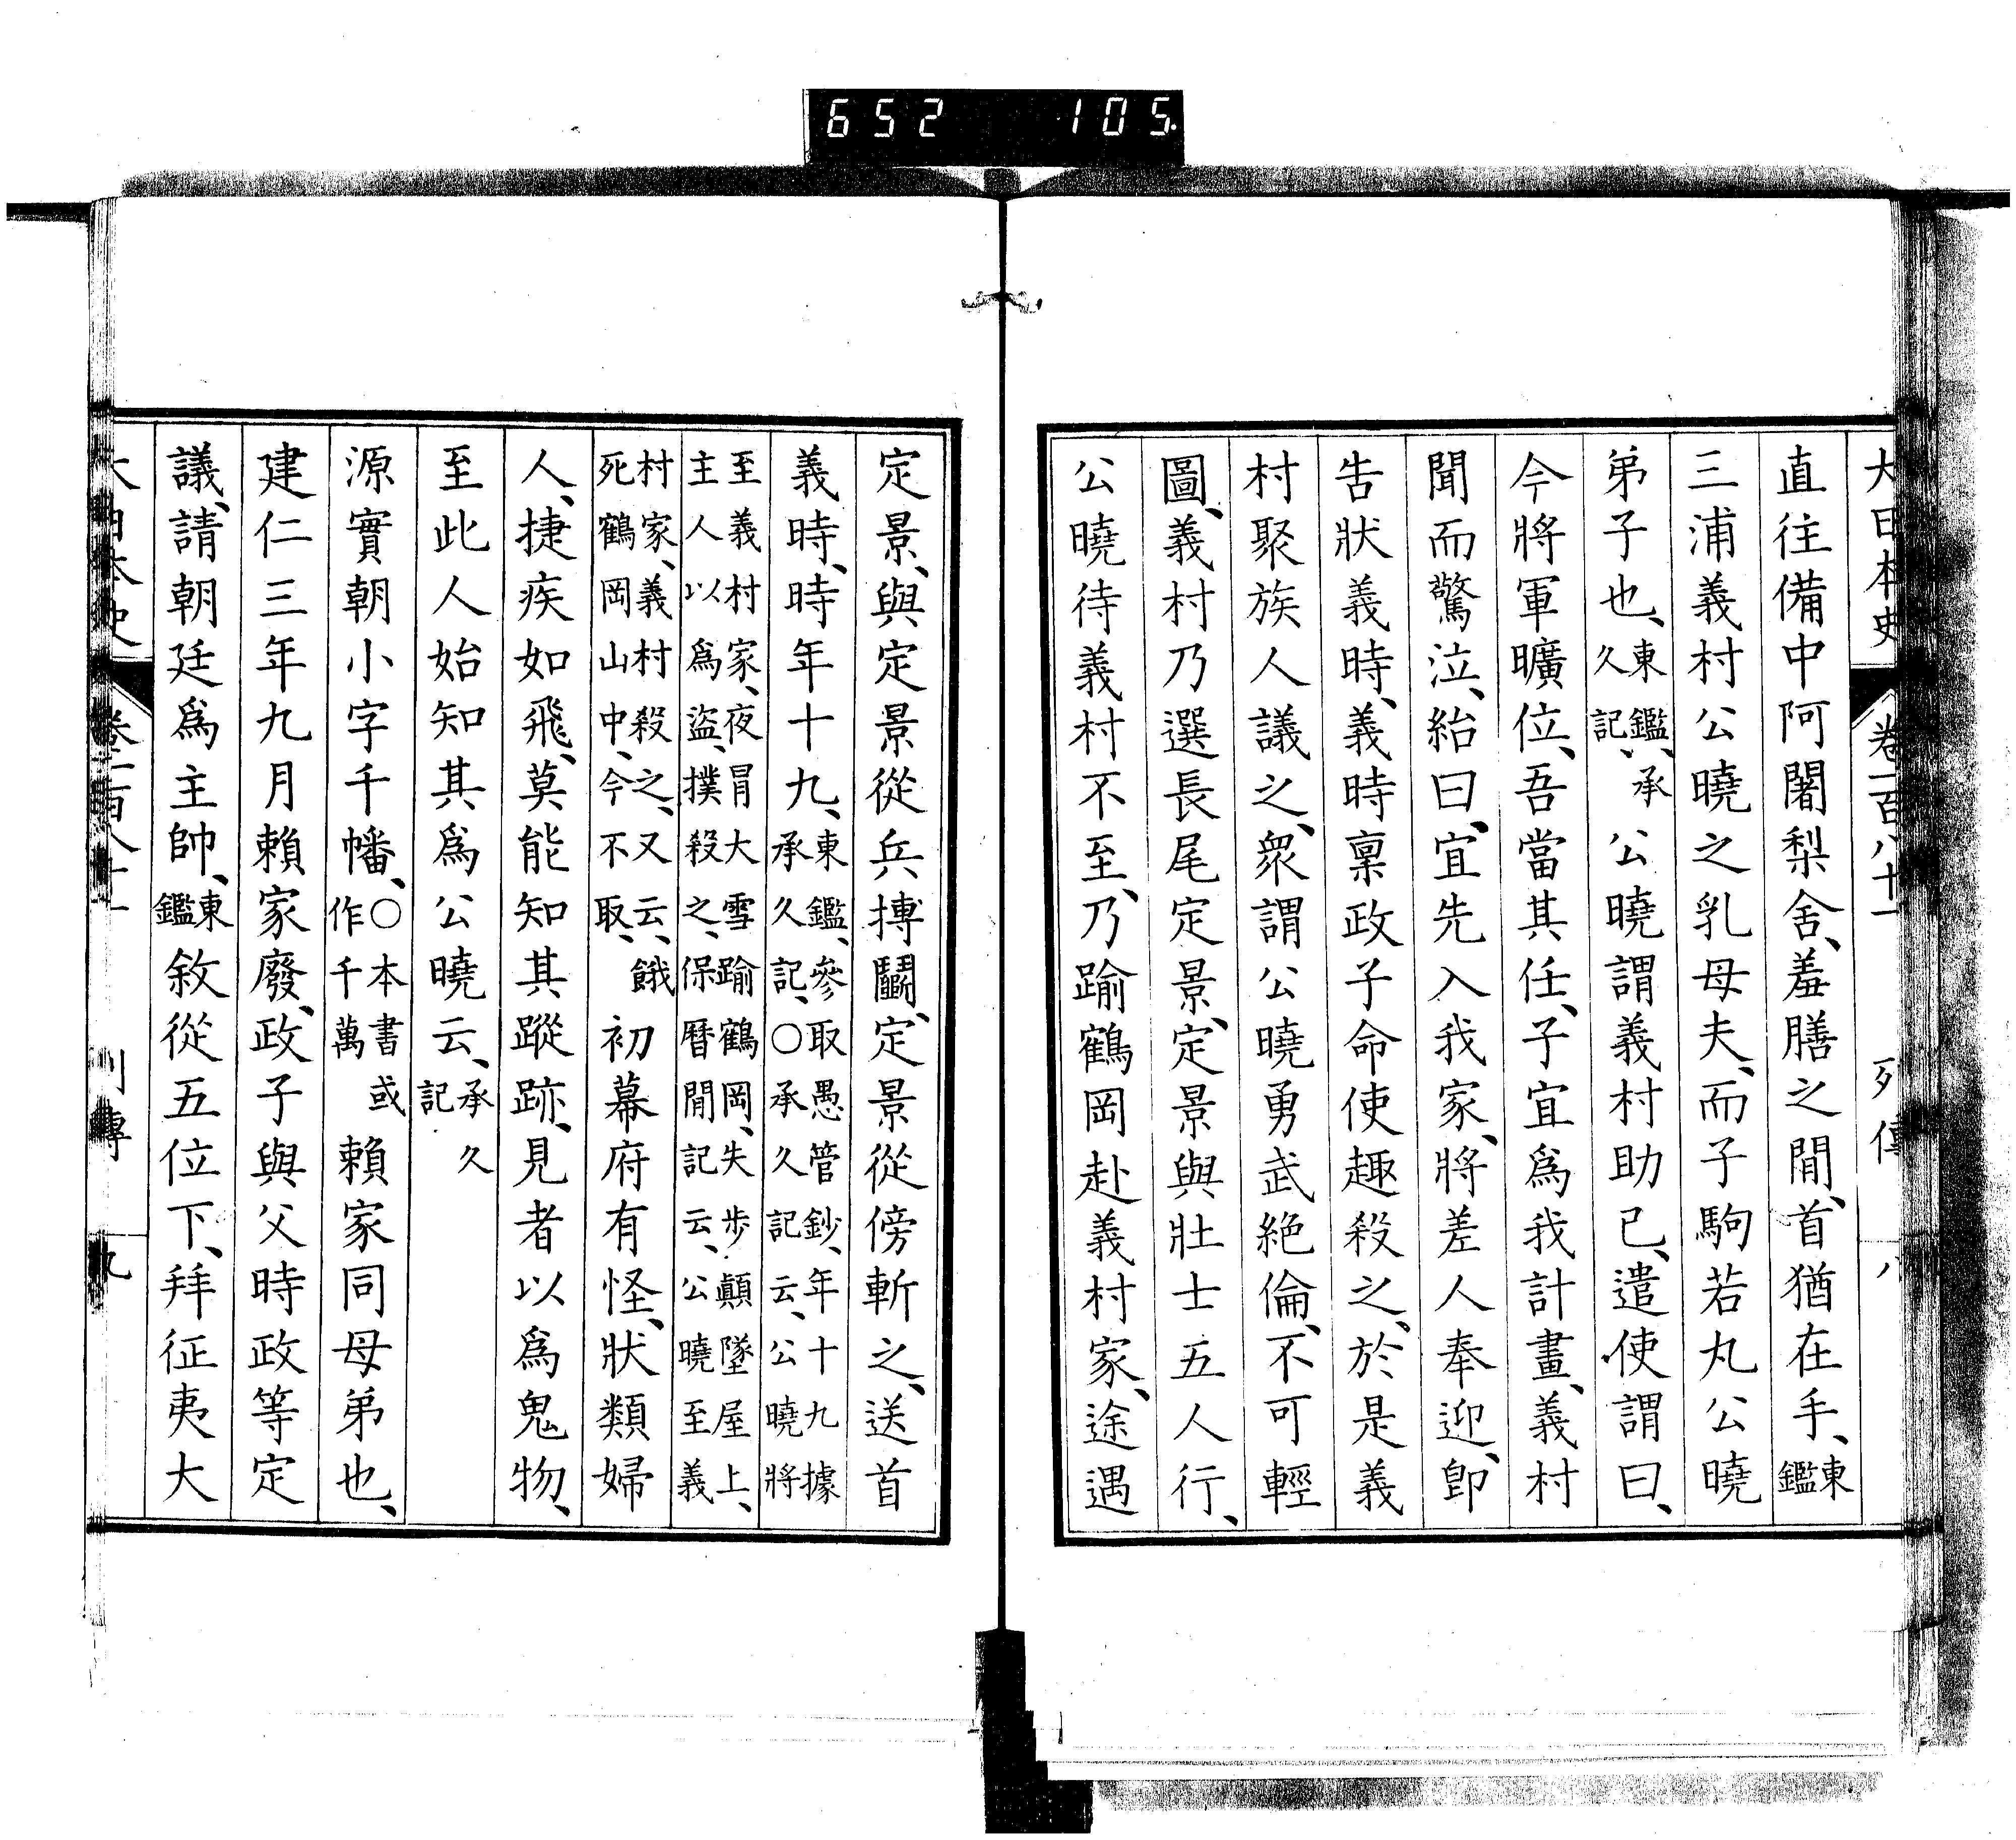 652 105
大日本史 卷一百八十一 列傳 八
直往備中阿闍梨舍、羞膳之閒、首猶在手、東鑑
三浦義村公曉之乳母夫、而子駒若丸公曉
弟子也、東鑑、承久記、公曉謂義村助已、遣使謂曰、
今將軍曠位、吾當其任、子宜爲我計畫、義村
聞而驚泣、紿曰、宜先入我家、將差人奉迎、卽
告狀義時、義時稟政子命使趣殺之、於是義
村聚族人議之、衆謂公曉勇武絕倫、不可輕
圖、義村乃選長尾定景、定景與壯士五人行、
公曉待義村不至、乃踰鶴岡赴義村家、途遇
定景、與定景從兵搏鬬、定景從傍斬之、送首
義時、時年十九、東鑑、參取愚管鈔、年十九據承久記、○承久記云、公曉將
至義村家、夜冒大雪踰鶴岡、失步顚墜屋上、主人以爲盜、撲殺之、保曆閒記云、公曉至義
村家、義村殺之、又云、餓死鶴岡山中、今不取、初幕府有怪、狀類婦
人、捷疾如飛、莫能知其蹤跡、見者以爲鬼物、
至此人始知其爲公曉云、承久記
源實朝小字千幡、○本書或作千萬賴家同母弟也、
建仁三年九月賴家廢、政子與父時政等定
議、請朝廷爲主帥、東鑑敘從五位下、拜征夷大
大日本史 卷一百八十一 列傳 九